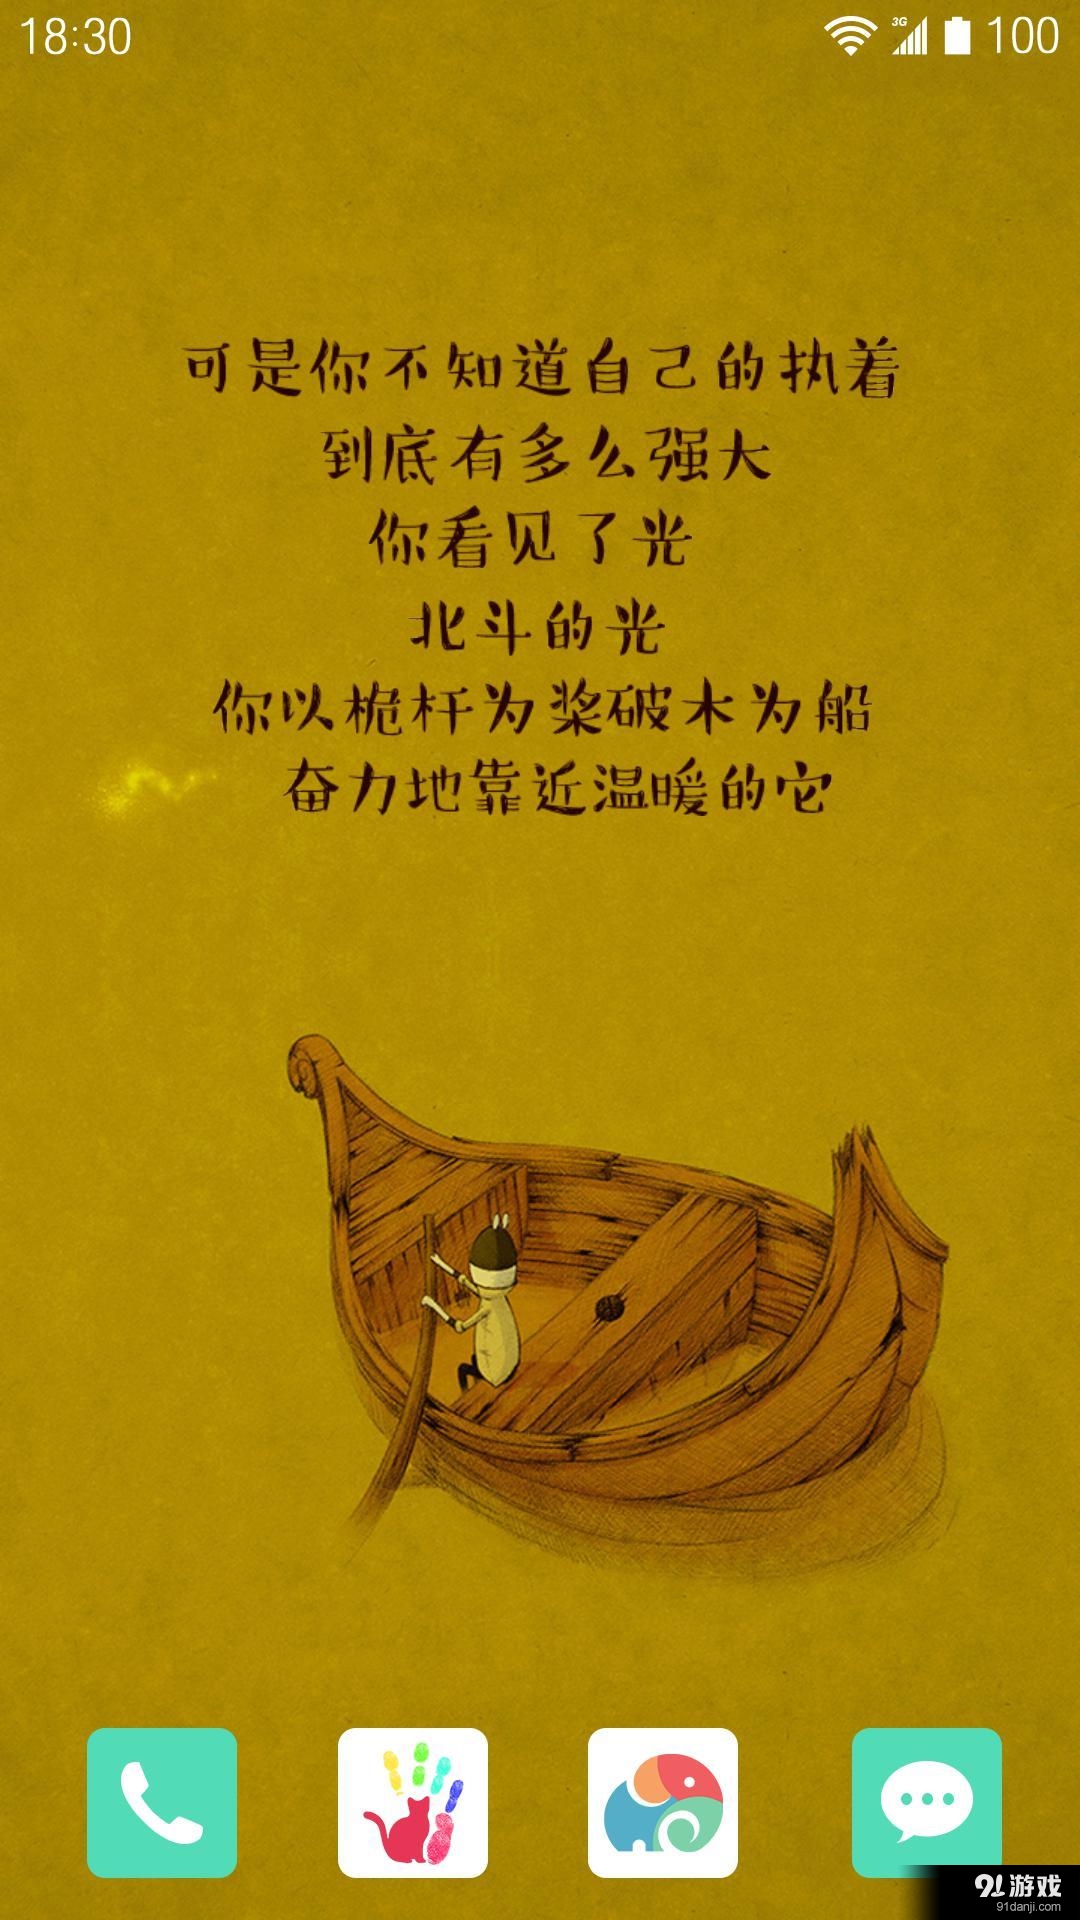 18:30
3G
100
可是你不知道自己的执着
到底有多么强大
你看见了光
北斗的光
你以桅杆为桨破木为船
奋力地靠近温暖的它
91游戏
91danji.com